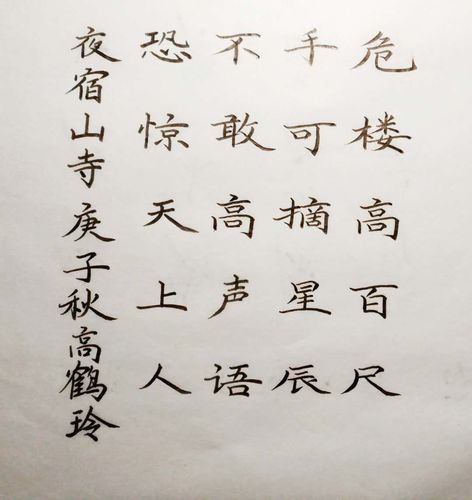 危楼高百尺
手可摘星辰
不敢高声语
恐惊天上人
夜宿山寺庚子秋高鹤玲